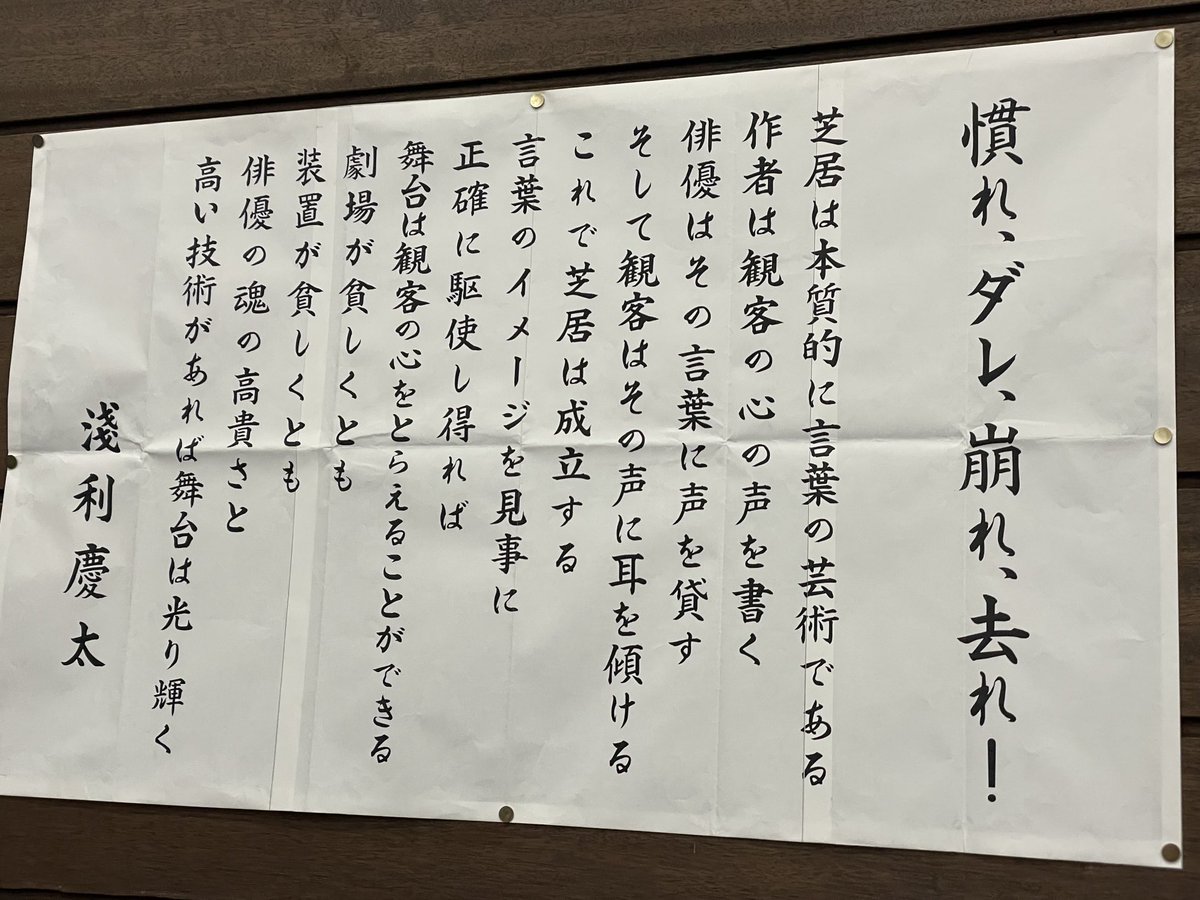 慣れ、ダレ、崩れ、去れ！
芝居は本質的に言葉の芸術である
作者は観客の心の声を書く
俳優はその言葉に声を貸す
そして観客はその声に耳を傾ける
これで芝居は成立する
言葉のイメージを見事に
正確に駆使し得れば
舞台は観客の心をとらえることができる
劇場が貧しくとも
装置が貧しくとも
俳優の魂の高貴さと
高い技術があれば舞台は光り輝く
淺利慶太